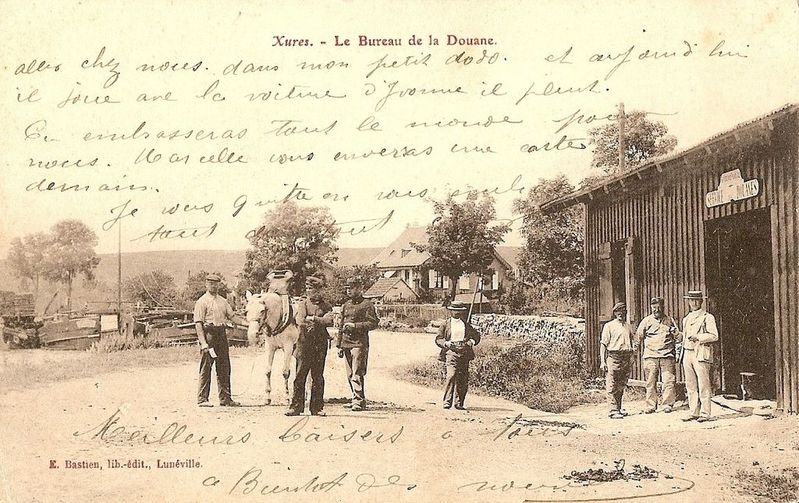 Xures. - Le Bureau de la Douane.
aller chez nous. dans mon petit dodo. et aujourd'hui
il joue avec la voiture d'Yvonne il pleut.
Tu embrasseras tout le monde pour
nous. Marcelle vous enverras une carte
demain.
Je vous quitte en vous
tout
DOUANES
Meilleurs baisers à tous
à Bientôt des
E. Bastien, lib.-édit., Lunéville.